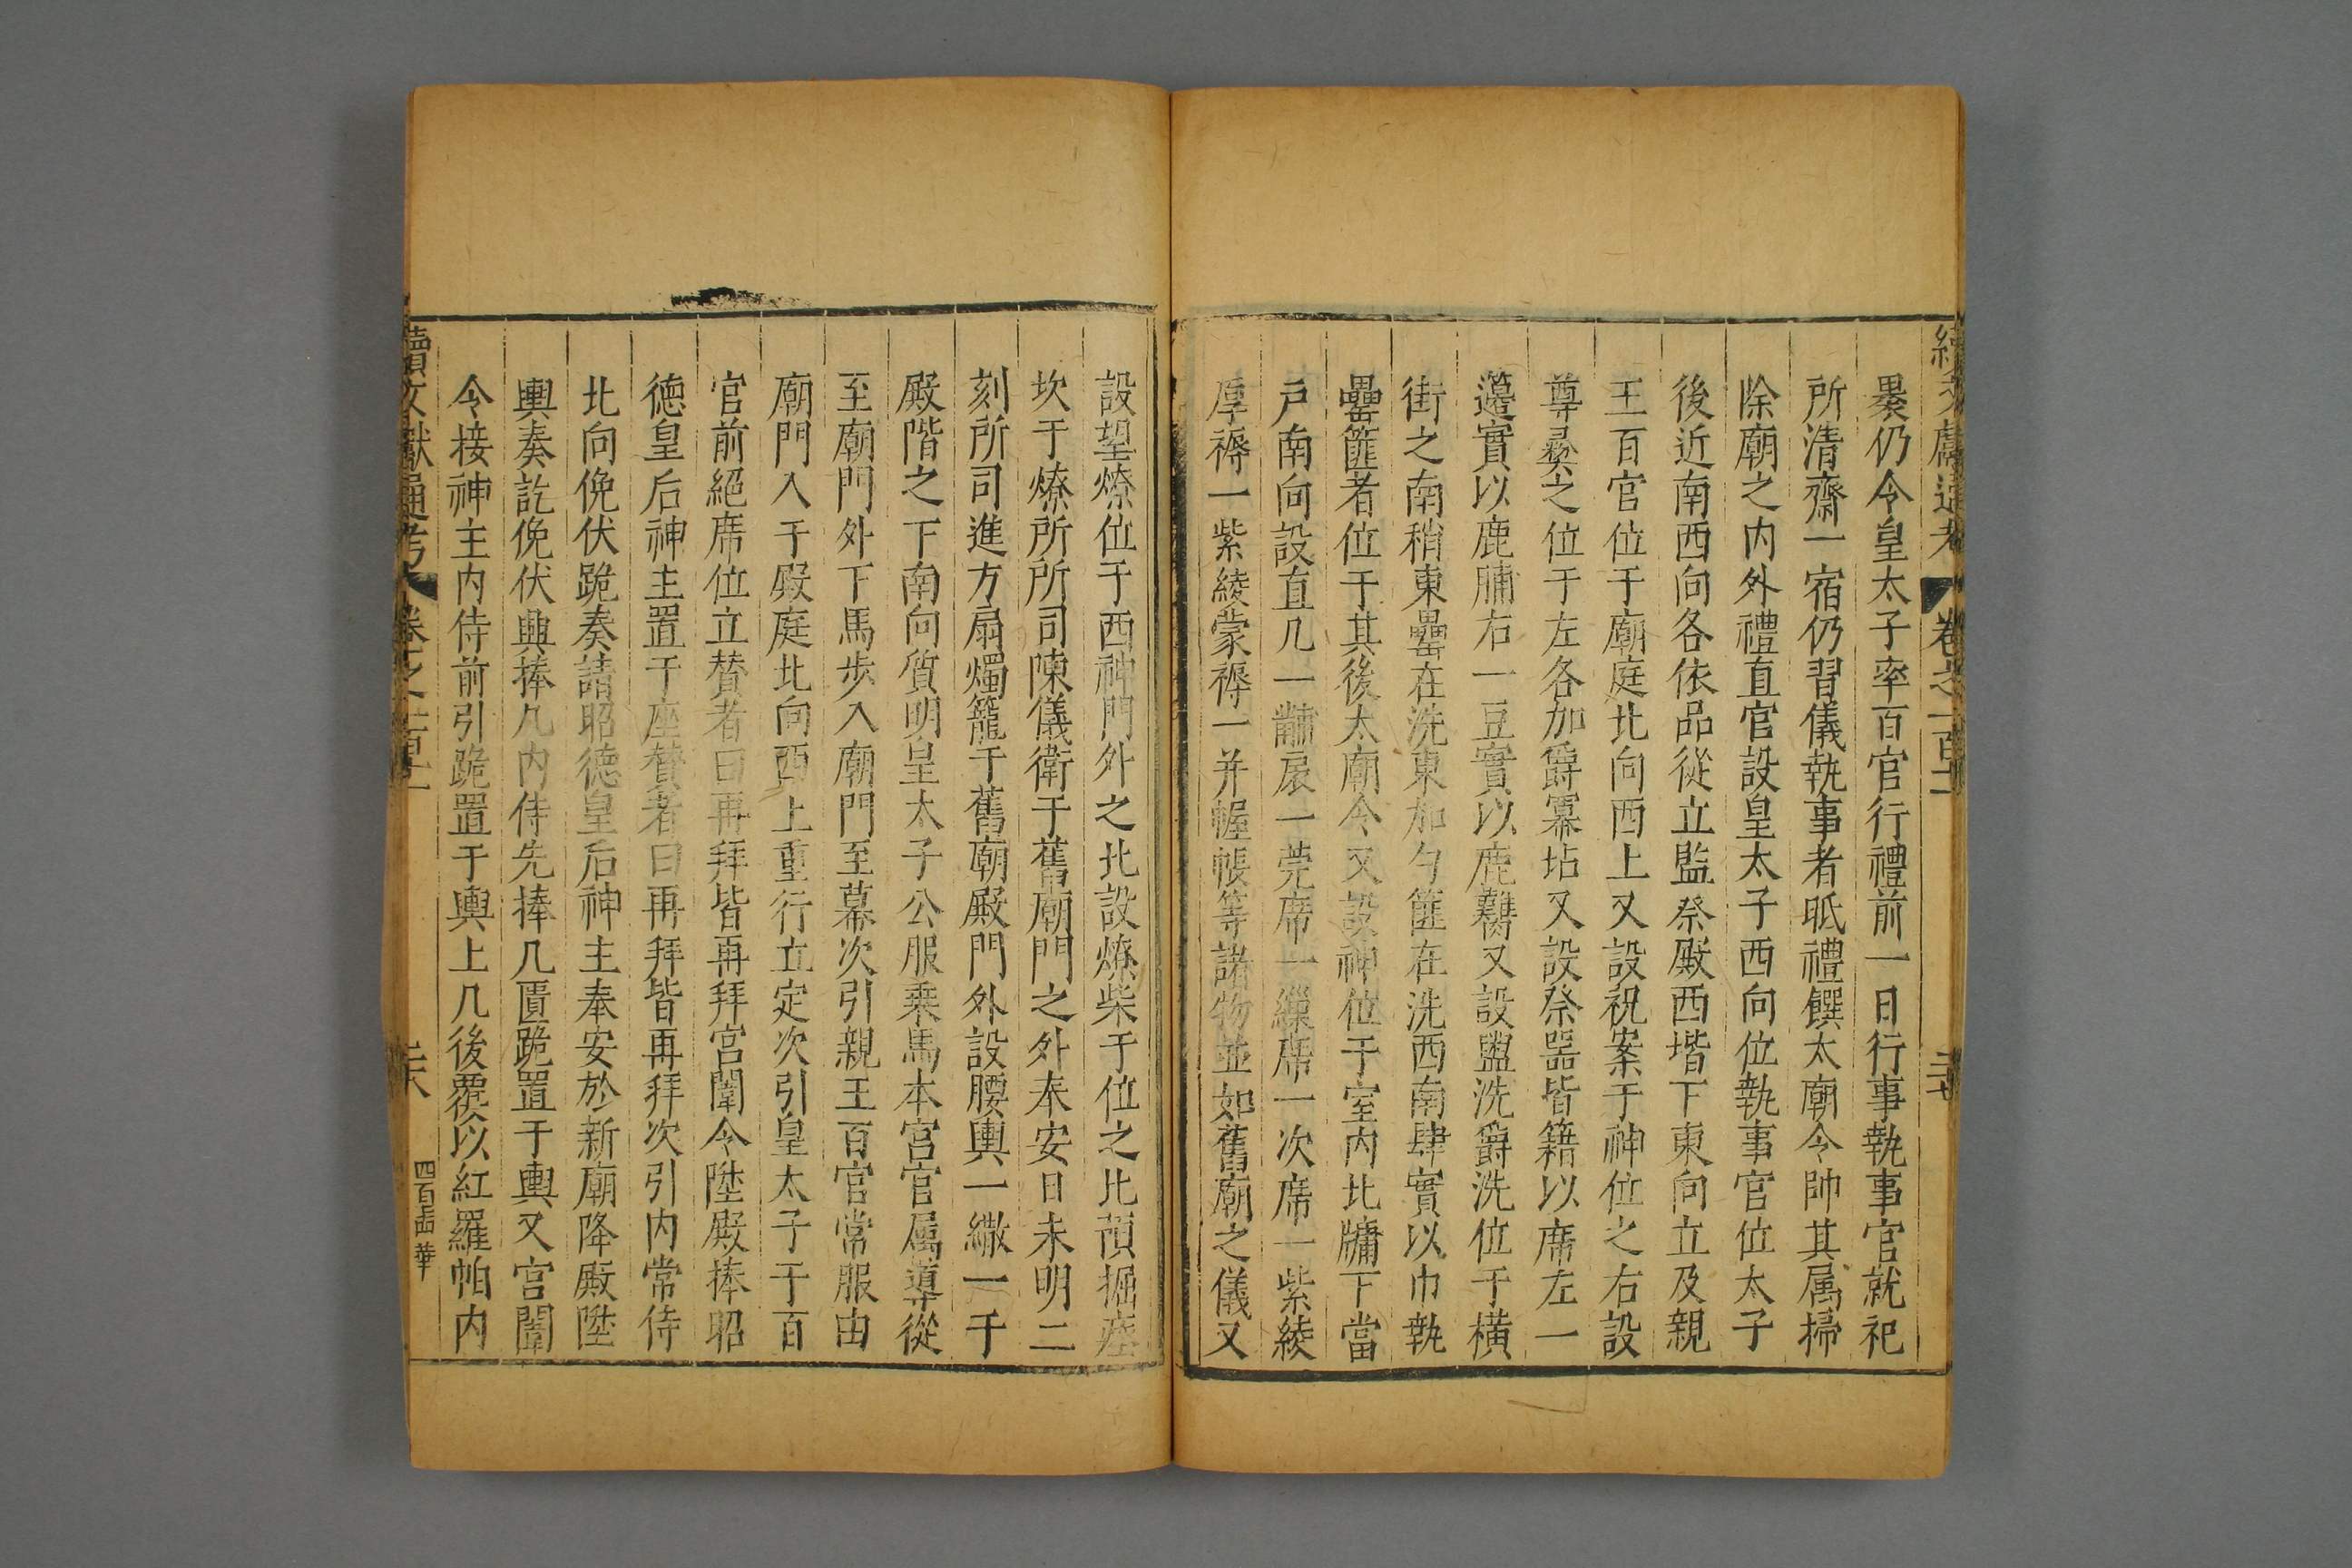 續文獻通考 卷之一百二 二十七
累仍令皇太子率百官行禮前一日行事執事官就祀
所清齋一宿仍習儀執事者眡禮饌太廟令帥其属掃
除廟之内外禮直官設皇太子西向位執事官位太子
後近南西向各依品從立監祭殿西堦下東向立及親
王百官位于廟庭北向西上又設祝案于神位之右設
尊彜之位于左各加爵冪坫又設祭器皆籍以席左一
籩實以鹿脯右一豆實以鹿臡又設盥洗爵洗位于横
街之南稍東罍在洗東加勺篚在洗西南肆實以巾執
罍篚者位于其後太廟令又設神位于室内北牖下當
戸南向設直几一黼扆一莞席一繅席一次席一紫綾
厚褥一紫綾蒙褥一并幄帳等諸物並如舊廟之儀又
設望燎位于西神門外之北設燎柴于位之北預掘瘞
坎于燎所所司陳儀衛于舊廟門之外奉安日未明二
刻所司進方扇燭籠于舊廟殿門外設腰輿一繖一于
殿階之下南向質明皇太子公服乘馬本宫官属導從
至廟門外下馬步入廟門至幕次引親王百官常服由
廟門入于殿庭北向西上重行立定次引皇太子于百
官前絕席位立贊者曰再拜皆再拜宫闈令陞殿捧昭
德皇后神主置于座贊者曰再拜皆再拜次引内常侍
北向俛伏跪奏請昭德皇后神主奉安於新廟降殿陞
輿奏訖俛伏興捧几内侍先捧几匱跪置于輿又宫闈
令接神主内侍前引跪置于輿上几後覆以紅羅帕内
續文獻通考 卷之一百二 二十八